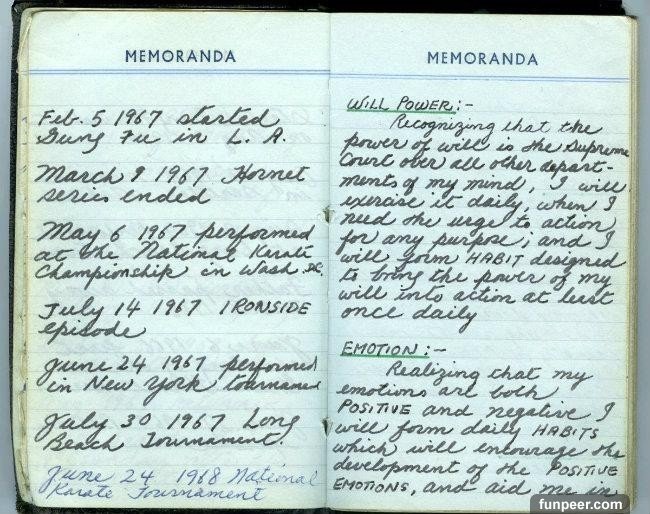 MEMORANDA
Feb. 5 1967 started
Gung Fu in L. A.
March 9 1967 Hornet
series ended
May 6 1967 performed
at the National Karate
Championship in Wash DC.
July 14 1967 IRONSIDE
episode
June 24 1967 performed
in New York tournament
July 30 1967 Long
Beach Tournament.
June 24 1968 National
Karate Tournament
MEMORANDA
WILL POWER:-
Recognizing that the
power of will is the supreme
Court over all other depart-
ments of my mind, I will
exercise it daily, when I
need the urge to action
for any purpose; and I
will form HABIT designed
to bring the power of my
will into action at least
once daily
EMOTION:-
Realizing that my
emotions are both
POSITIVE and negative I
will form daily HABITS
which will encourage the
development of the POSITIVE
EMOTIONS, and aid me in
funpeer.com